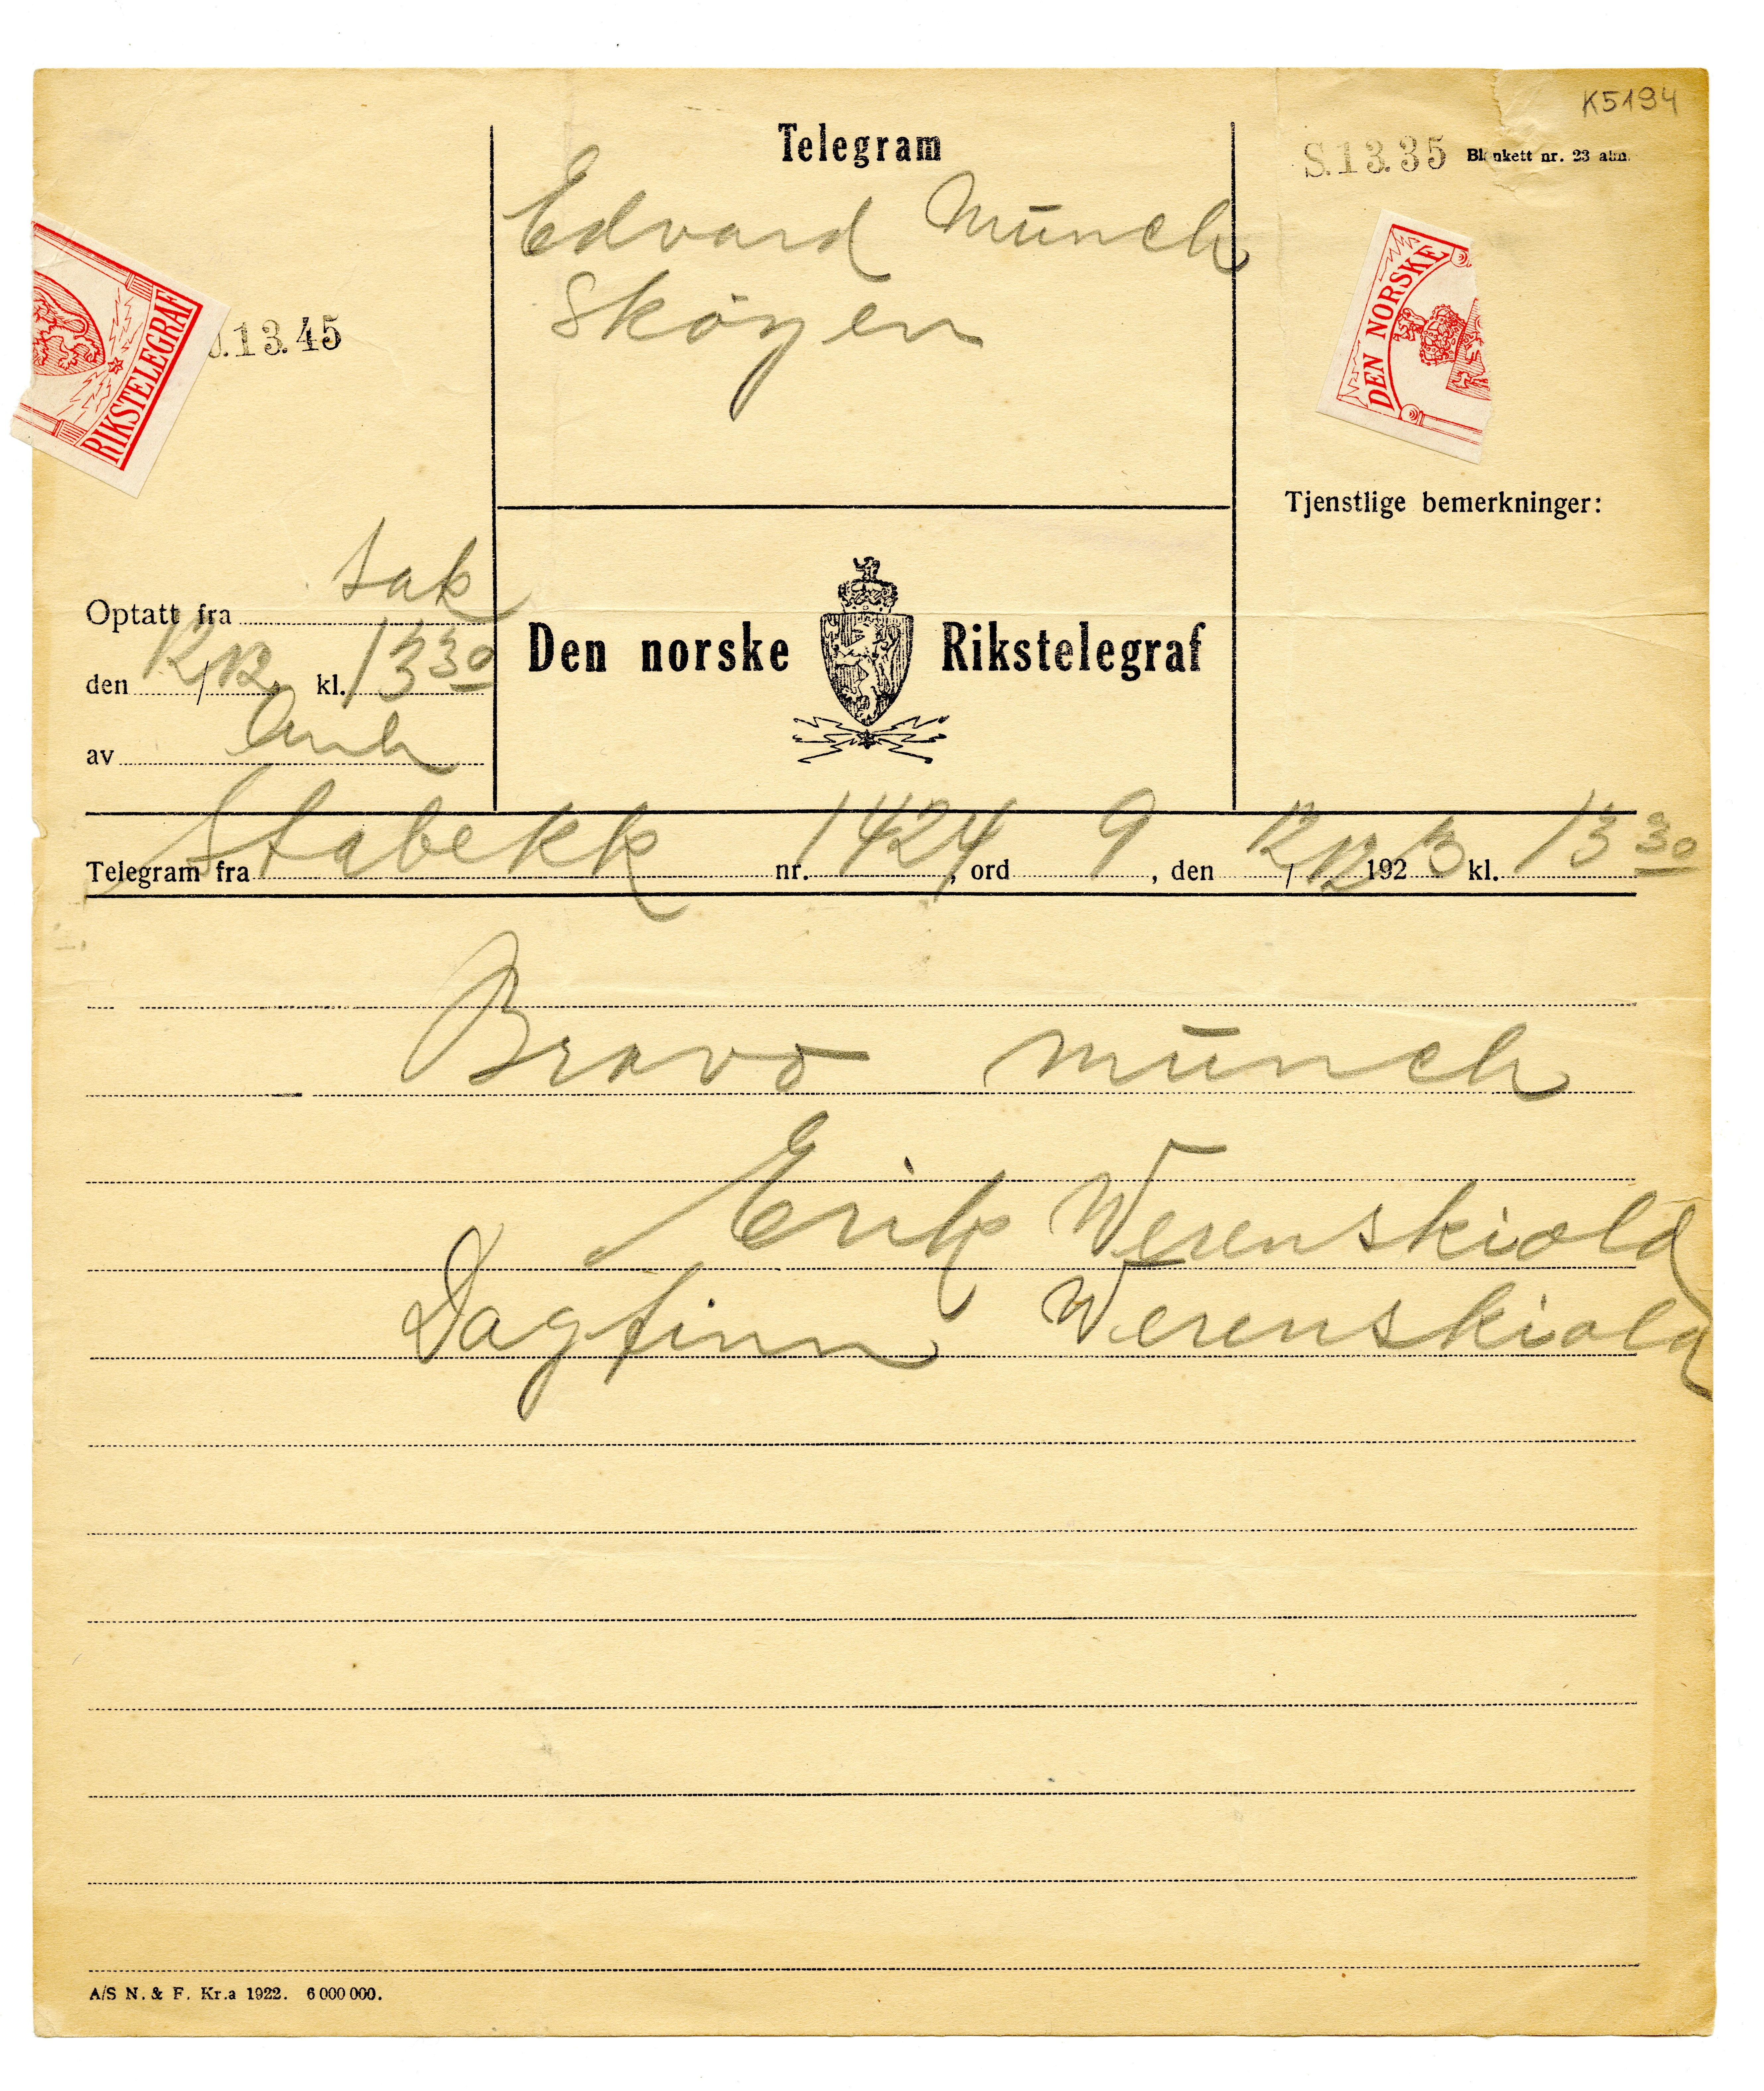 K5194
Telegram
S.13.35 Blankett nr. 23 alm.
Edvard Münch
Skøyen
DEN NORSKE
RIKSTELEGRAF
13.45
Tjenstlige bemerkninger:
Optatt fra sak
den 12/12 kl. 13 30
av
Den norske Rikstelegraf
Telegram fra Stabekk nr. 1424, ord 9, den 12/12 1923 kl. 13 30
Bravo Münch
Erik Werenskiold
Dagfinn Werenskiold
A/S N. & F. Kr.a 1922. 6 000 000.